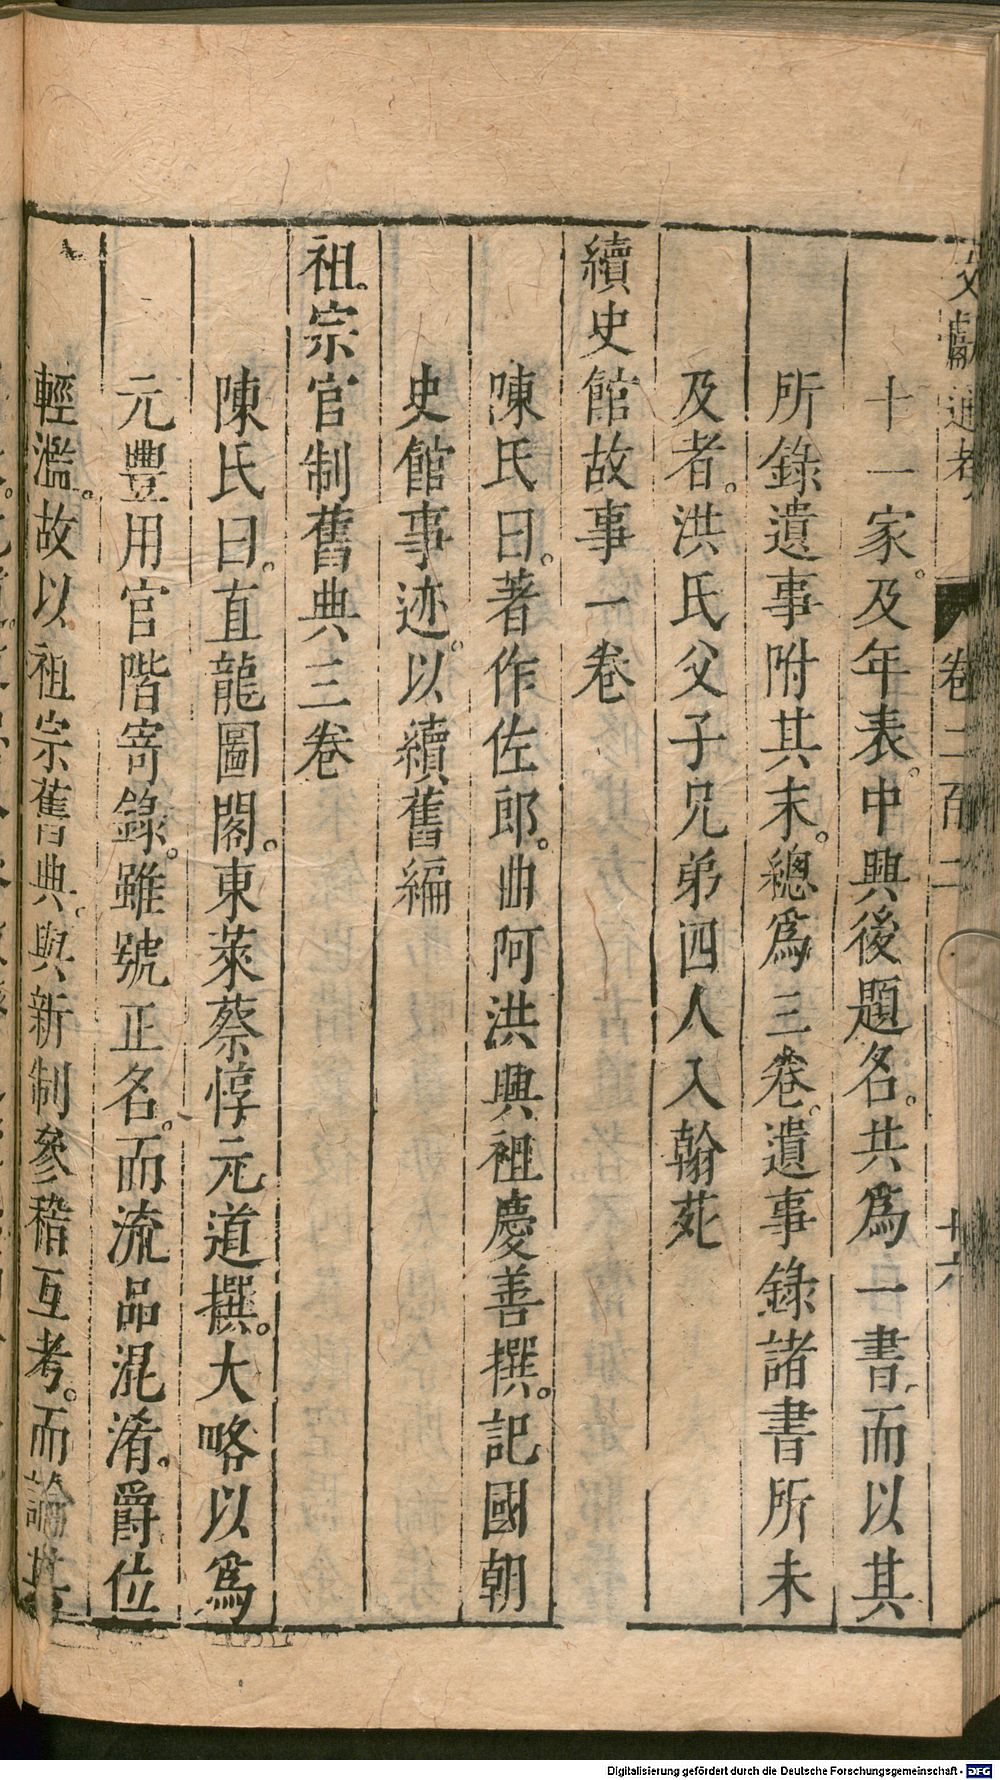 文獻通考 卷二百二 十六
十一家。及年表。中興後題名。共爲一書。而以其
所錄遺事附其末。總爲三卷。遺事錄諸書所未
及者。洪氏父子兄弟四人入翰苑
續史館故事一卷
陳氏曰。著作佐郎。曲阿洪興祖慶善撰。記國朝
史館事迹。以續舊編
祖宗官制舊典三卷
陳氏曰。直龍圖閣。東萊蔡惇元道撰。大略以爲
元豐用官階寄錄。雖號正名。而流品混淆。爵位
輕濫。故以祖宗舊典。與新制參稽互考。而論其
Digitalisierung gefördert durch die Deutsche Forschungsgemeinschaft - DFG